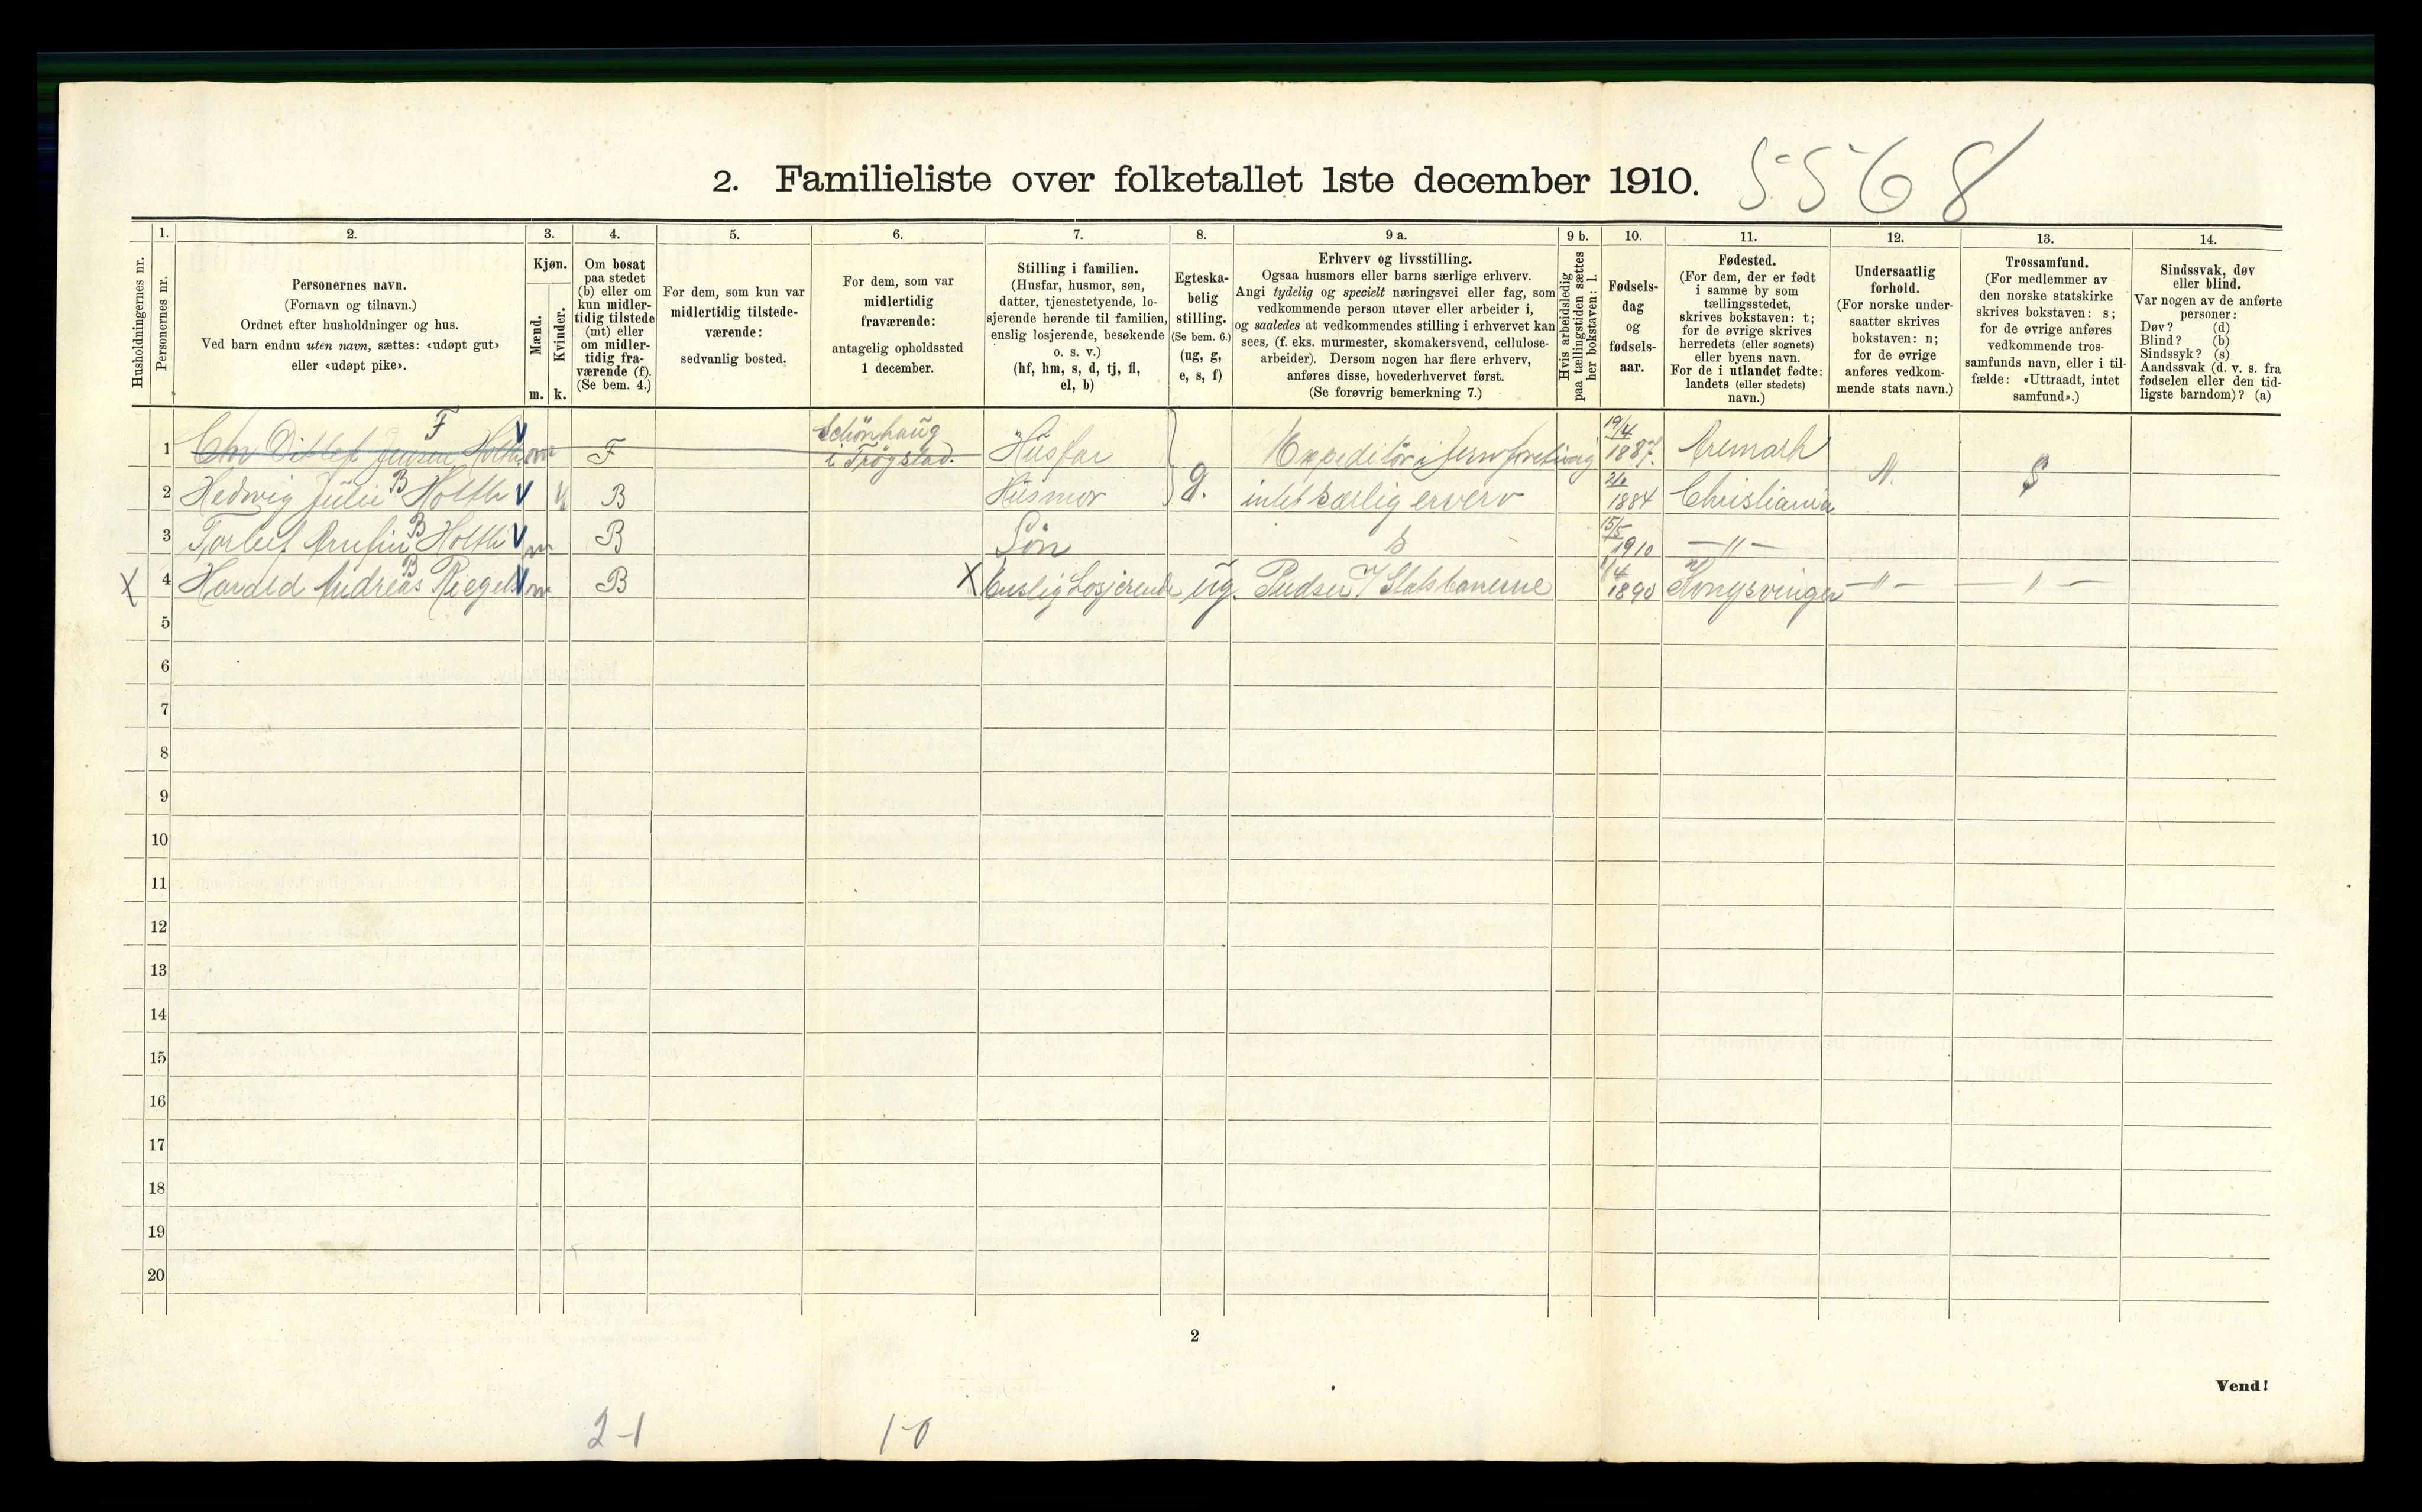 2. Familieliste over folketallet 1ste december 1910. 5568
Husholdningernes nr.
1. Personernes nr.
2. Personernes navn.
(Fornavn og tilnavn.)
Ordnet efter husholdninger og hus.
Ved barn endnu uten navn, sættes: «udøpt gut»
eller «udøpt pike».
3. Kjøn.
Mænd. m.
Kvinder. k.
4. Om bosat
paa stedet
(b) eller om
kun midler-
tidig tilstede
(mt) eller
om midler-
tidig fra-
værende (f).
(Se bem. 4.)
5. For dem, som kun var
midlertidig tilstede-
værende:
sedvanlig bosted.
6. For dem, som var
midlertidig
fraværende:
antagelig opholdssted
1 december.
7. Stilling i familien.
(Husfar, husmor, søn,
datter, tjenestetyende, lo-
sjerende hørende til familien,
enslig losjerende, besøkende
o. s. v.)
(hf, hm, s, d, tj, fl,
el, b)
8. Egteska-
belig
stilling.
(Se bem. 6.)
(ug, g,
e, s, f)
9 a. Erhverv og livsstilling.
Ogsaa husmors eller barns særlige erhverv.
Angi tydelig og specielt næringsvei eller fag, som
vedkommende person utøver eller arbeider i,
og saaledes at vedkommendes stilling i erhvervet kan
sees, (f. eks. murmester, skomakersvend, cellulose-
arbeider). Dersom nogen har flere erhverv,
anføres disse, hovederhvervet først.
(Se forøvrig bemerkning 7.)
9 b. Hvis arbeidsledig
paa tællingstiden sættes
her bokstaven: l.
10. Fødsels-
dag
og
fødsels-
aar.
11. Fødested.
(For dem, der er født
i samme by som
tællingsstedet,
skrives bokstaven: t;
for de øvrige skrives
herredets (eller sognets)
eller byens navn.
For de i utlandet fødte:
landets (eller stedets)
navn.)
12. Undersaatlig
forhold.
(For norske under-
saatter skrives
bokstaven: n;
for de øvrige
anføres vedkom-
mende stats navn.)
13. Trossamfund.
(For medlemmer av
den norske statskirke
skrives bokstaven: s;
for de øvrige anføres
vedkommende tros-
samfunds navn, eller i til-
fælde: «Uttraadt, intet
samfund».)
14. Sindssvak, døv
eller blind.
Var nogen av de anførte
personer:
Døv? (d)
Blind? (b)
Sindssyk? (s)
Aandssvak (d. v. s. fra
fødselen eller den tid-
ligste barndom)? (a)
1 Chr Ditlef Jensen Holth F V m F Schönhaug i Trøgstad. Husfar g. Expeditör i Jernforetning 19/4 1887. Aremark N. S
2 Hedwig Julie B Holth V k B Husmor intet særlig erverv 1884 Christiania
3 Torleif Arnfin B Holth V m B Sön s 15/5 1910 —"—
X 4 Harald Andreas B V m B X Enslig Losjerende ug. Pudser v/ Statsbanerne 1/4 1890 Kongsvinger —"— —"—
5
6
7
8
9
10
11
12
13
14
15
16
17
18
19
20
2
Vend!
2-1 1-0